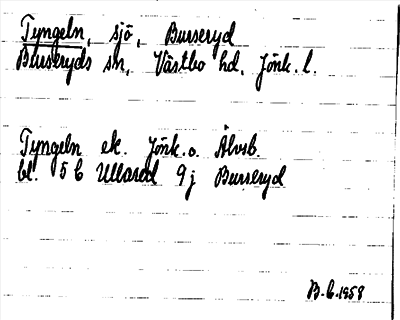 Tyngeln, sjö, Burseryd
Burseryds sn, Västbo hd, Jönk. l.
Tyngeln ek. Jönk. o. Älvsb.
bl. 5 C Ullared 9 j Burseryd
B. C. 1958